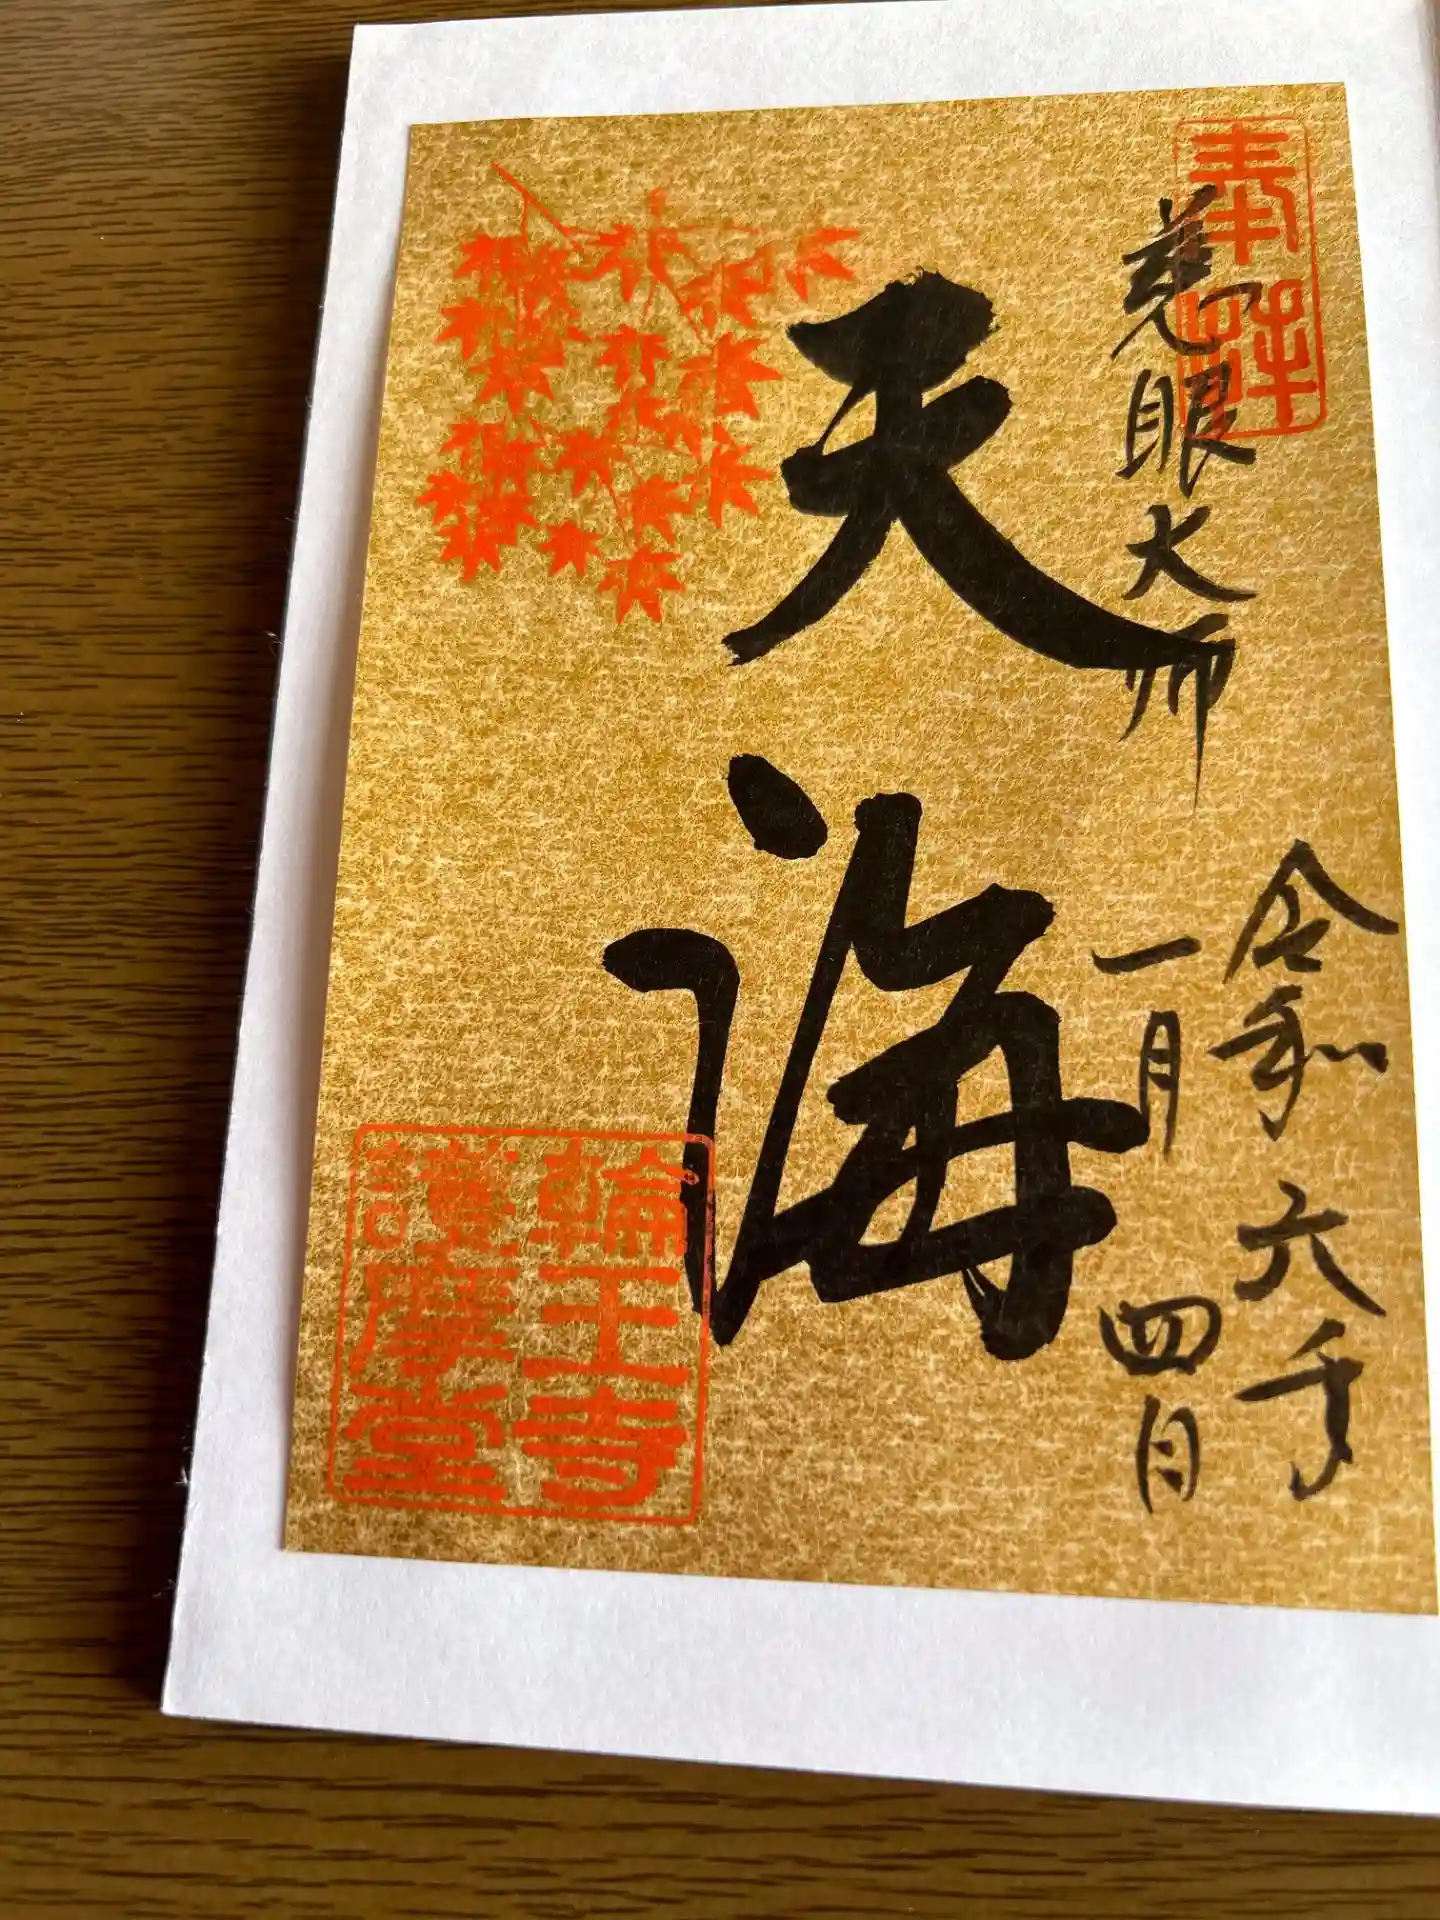 奉拝
慈眼大師
令和六年
一月四日
天海
輪王寺
護摩堂